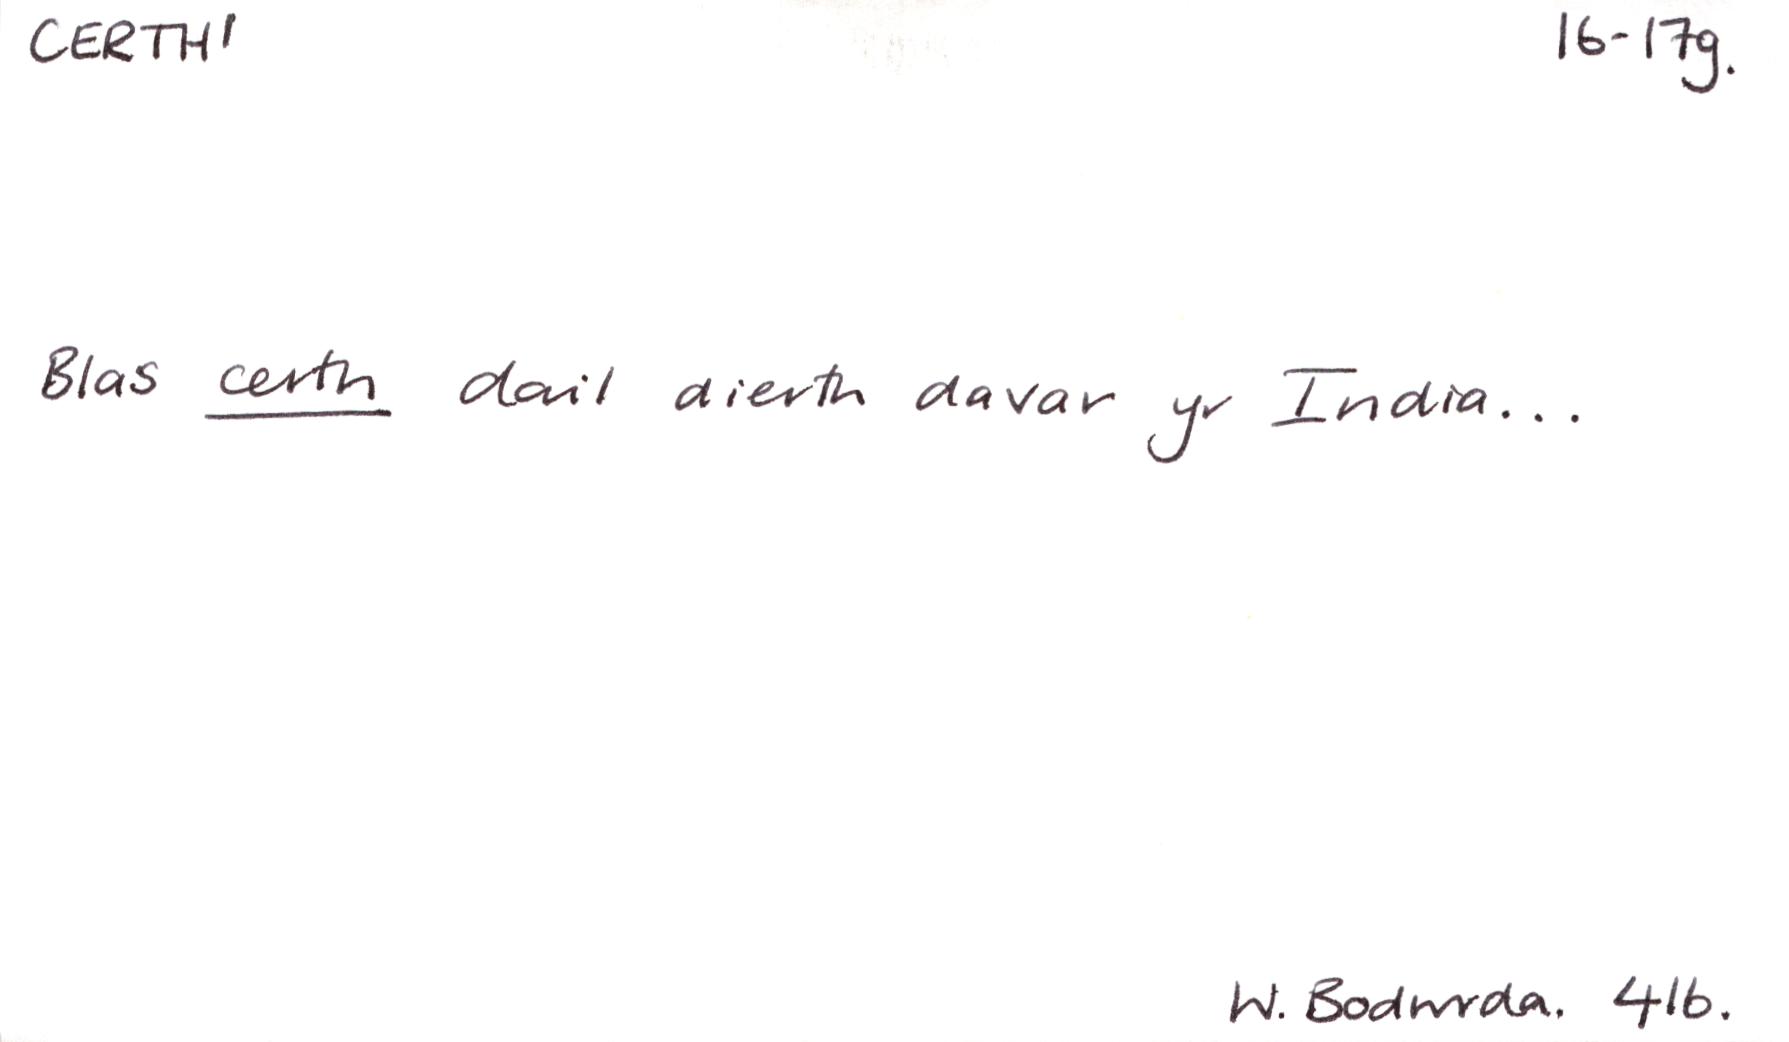 CERTH¹ 16-17g.
Blas certh dail dierth davar yr India...
W. Bodwrda. 416.